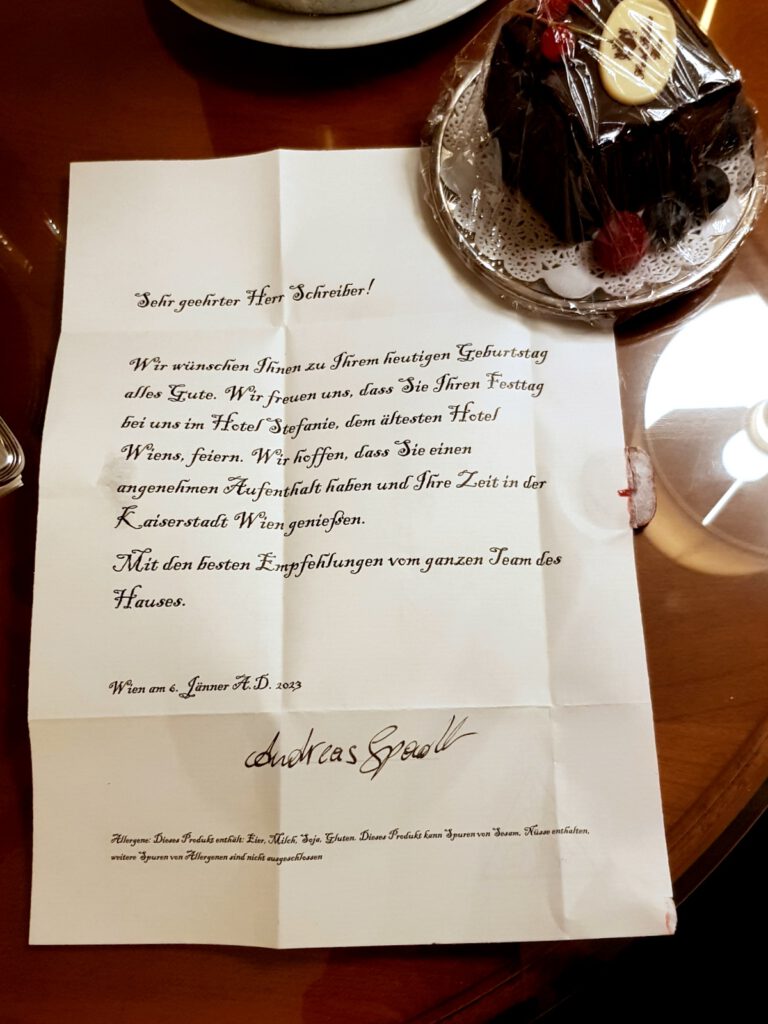 Sehr geehrter Herr Schreiber!
Wir wünschen Ihnen zu Ihrem heutigen Geburtstag
alles Gute. Wir freuen uns, dass Sie Ihren Festtag
bei uns im Hotel Stefanie, dem ältesten Hotel
Wiens, feiern. Wir hoffen, dass Sie einen
angenehmen Aufenthalt haben und Ihre Zeit in der
Kaiserstadt Wien genießen.
Mit den besten Empfehlungen vom ganzen Team des
Hauses.
Wien am 6. Jänner A.D. 2023
Andreas
Allergene: Dieses Produkt enthält: Eier, Milch, Soja, Gluten. Dieses Produkt kann Spuren von Sesam, Nüsse enthalten,
weitere Spuren von Allergenen sind nicht ausgeschlossen